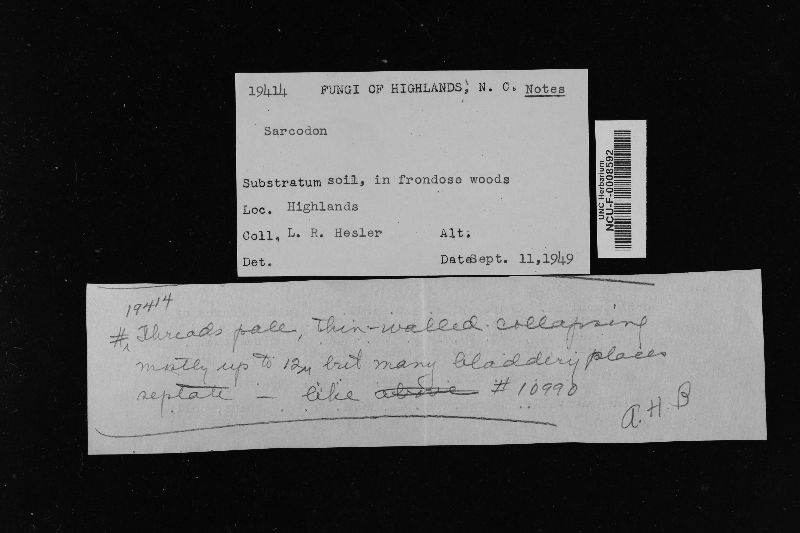 19414 FUNGI OF HIGHLANDS, N. C. Notes
Sarcodon
Substratum soil, in frondose woods
Loc. Highlands
Coll, L. R. Hesler Alt.
Det. Date Sept. 11, 1949
UNC Herbarium
NCU-F-0008592
19414
#, Threads pale, thin-walled collapsing
mostly up to 12µ but many bladdery places
septate – like above # 10990
A.H.B